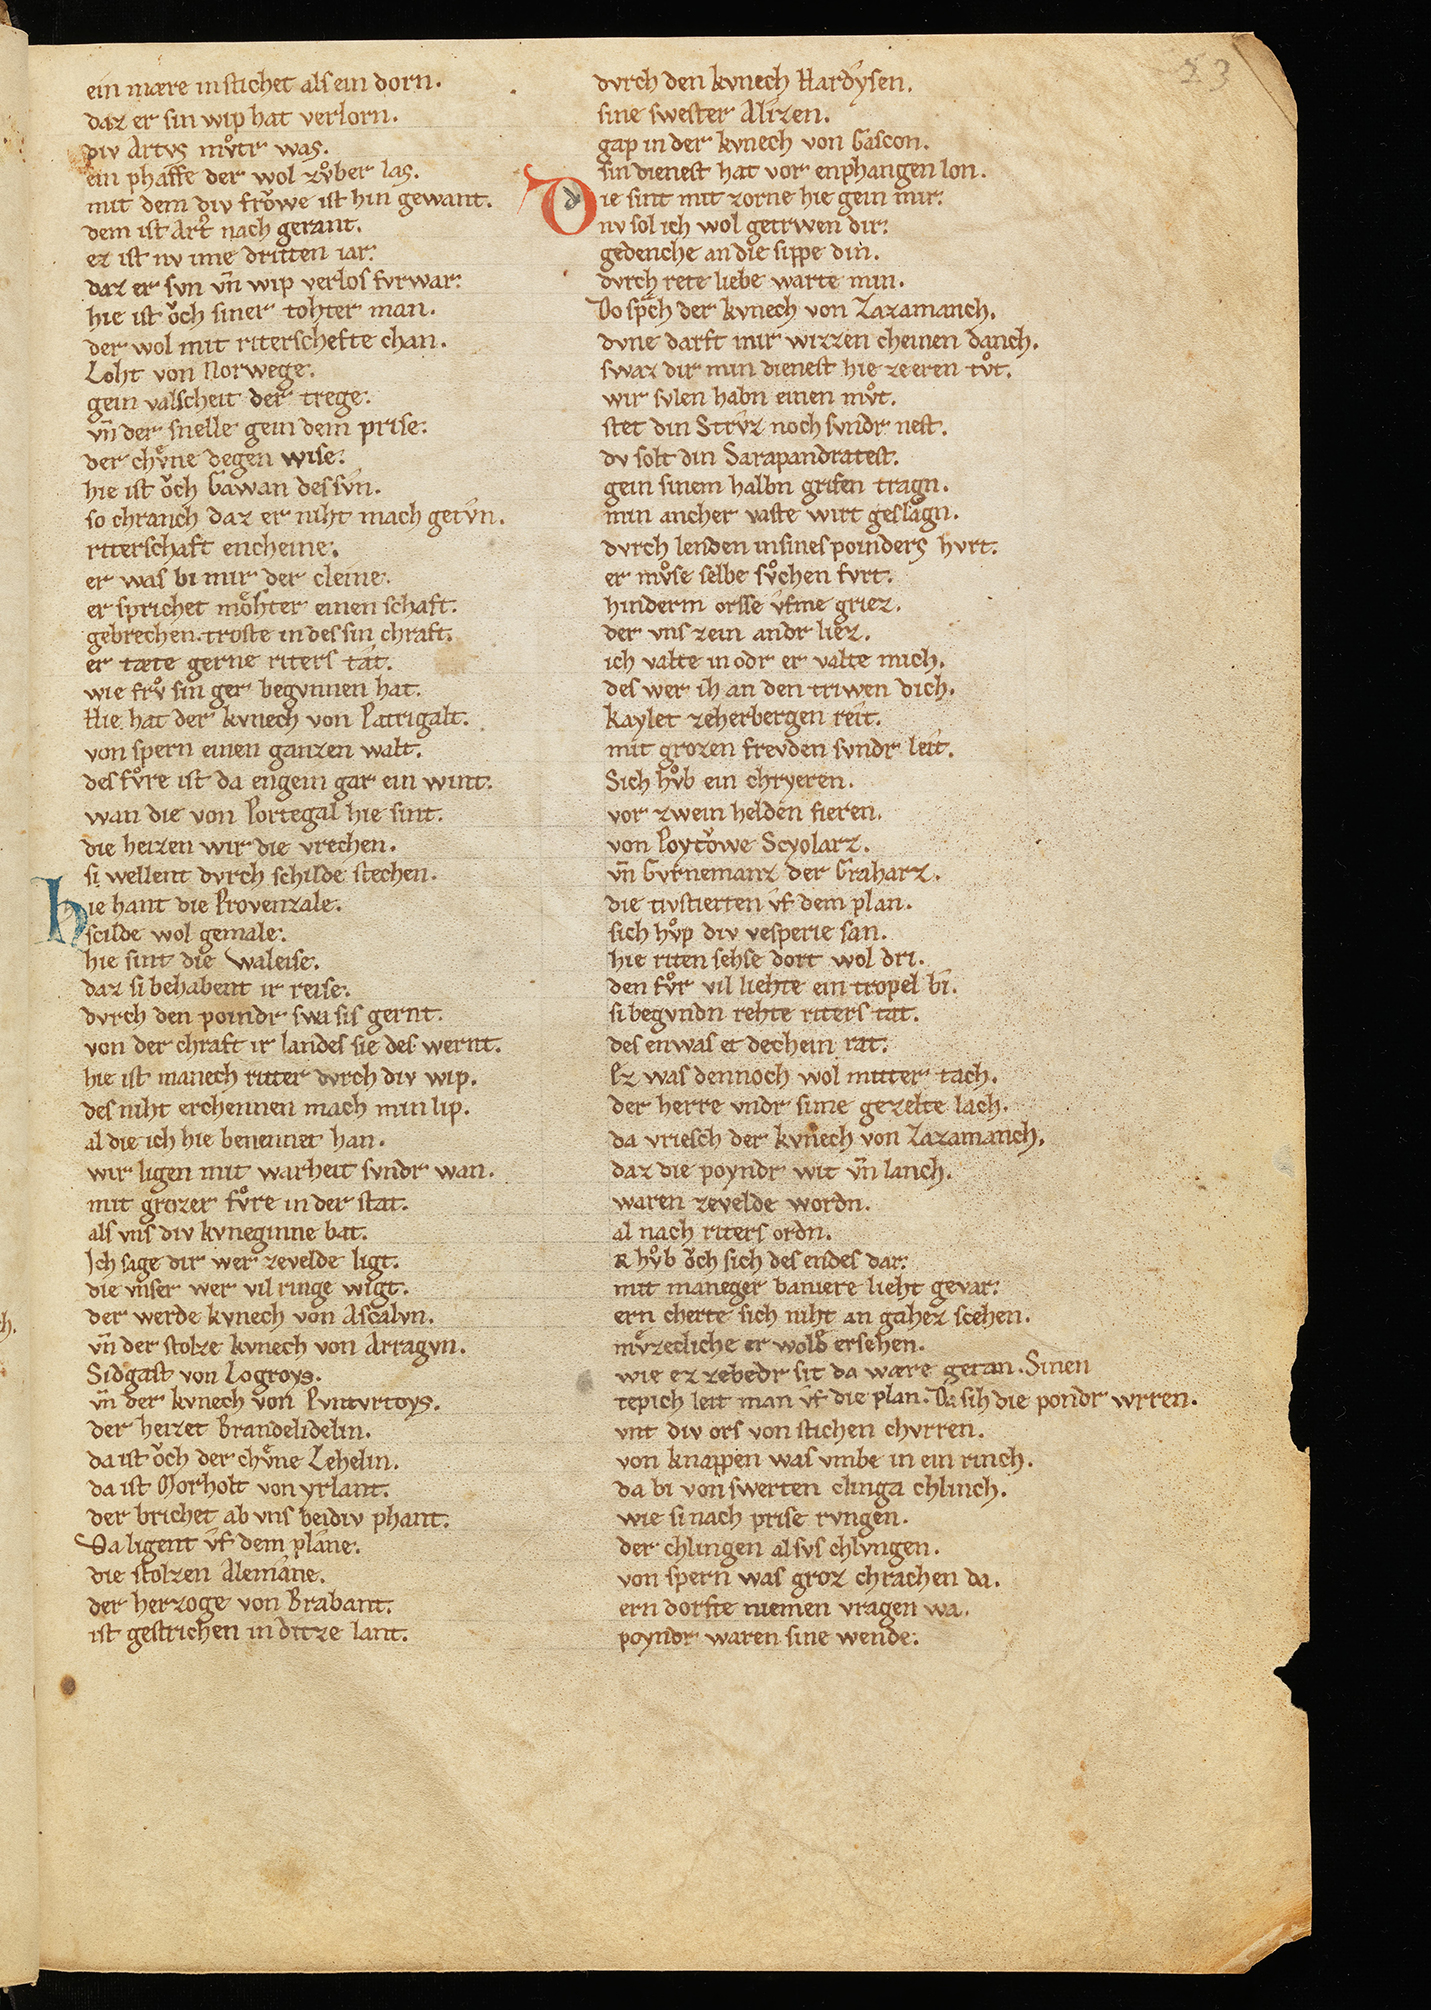 23
ein mære in stichet als ein dorn.
daz er sin wip hat verlorn.
div Artvs mv̊tr was.
ein phaffe der wol zv̊ber las.
mit dem div frǒwe ist hin gewant.
dem ist Art᷑ nach gerant.
ez ist nv ime dritten iar.
daz er svn vñ wip verlos fvrwar.
hie ist ǒch siner tohter man.
der wol mit riterschefte chan.
Loht von Norwege.
gein valscheit der trege.
vñ der snelle gein dem prise.
der chv̊ne degen wise.
hie ist ǒch Gawan des svn.
so chranch daz er niht mach getvn.
riterschaft encheine.
er was bi mir der cleine.
er sprichet mo̊hter einen schaft.
gebrechen. troste in des sin chraft.
er tæte gerne riters tat.
wie frv̊ sin ger begvnnen hat.
Hie hat der kvnech von Patrigalt.
von spern einen ganzen walt.
des fv̊re ist da engein gar ein wint.
wan die von Portegal hie sint.
die heizen wir die vrechen.
si wellent dvrch schilde stechen.
hie hant die Provenzale.
scilde wol gemale.
hie sint die Waleise.
daz si behabent ir reise.
dvrch den poindr swa sis gernt.
von der chraft ir landes sie des wernt.
hie ist manech ritter dvrch div wip.
des niht erchennen mach min lip.
al die ich hie benennet han.
wir ligen mit warheit svndr wan.
mit grozer fv̊re in der stat.
als vns div kvneginne bat.
Ich sage dir wer zevelde ligt.
die vnser wer vil ringe wigt.
der werde kvnech von Ascalvn.
vñ der stolze kvnech von Arragvn.
Sidgast von Logroys.
vñ der kvnech von Pvntvrtoys.
der heizet Brandelidelin.
da ist ǒch der chv̊ne Lehelin.
da ist Morholt von yrlant.
der brichet ab vns beidiv phant.
Da ligent v̂f dem plane.
die stolzen Alemane.
der herzoge von Brabant.
ist gestrichen in ditze lant.
dvrch den kvnech Hardysen.
sine swester Alizen.
gap in der kvnech von Gascon.
sin dienest hat vor enphangen lon.
Die sint mit zorne hie gein mir.
nv sol ich wol getrwen dir.
gedenche an die sippe din.
dvrch rete liebe warte min.
Do sp̄ch der kvnech von Zazamanch.
dvne darft mir wizzen cheinen danch.
swaz dir min dienest hie ze eren tv̊t.
wir svlen habn einen mv̊t.
stet din Strv̂z noch svndr nest.
dv solt din Sarapandratest.
gein sinem halbn grifen tragn.
min ancher vaste wirt geslagn.
dvrch lenden in sines poinders hvrt.
er mv̊se selbe sv̊chen fvrt.
hinderm orsse v̂fme griez.
der vns zein andr liez.
ich valte in odr er valte mich.
des wer ih an den triwen dich.
kaylet zeherbergen reit.
mit grozen frevden svndr leit.
Sich hv̊b ein chryeren.
vor zwein helden fieren.
von Poytǒwe Scyolarz.
vñ Gvrnemanz der Graharz.
die tivstierten v̂f dem plan.
sich hv̊p div vesperie san.
hie riten sehse dort wol dri.
den fv̊r vil liehte ein tropel bi.
si begvndn rehte riters tat.
des enwas et dechein rat.
Ez was dennoch wol mitter tach.
der herre vndr sime gezelte lach.
da vriesch der kvnech von Zazamanch.
daz die poyndr wit vñ lanch.
waren zevelde wordn.
al nach riters ordn.
R hv̊b ǒch sich des endes dar.
mit maneger baniere lieht gevar.
ern cherte sich niht an gahez scehen.
mv̊zecliche er wold ersehen.
wie ez zebedr sit da wære getan. Sinen
tepich leit man v̂f die plan. Da sih die pondr wrren.
vnt div ors von stichen chvrren.
von knappen was vmbe in ein rinch.
da bi von swerten clinga chlinch.
wie si nach prise rvngen.
der chlingen alsvs chlvngen.
von spern was groz chrachen da.
ern dorfte niemen vragen wa.
poyndr waren sine wende.